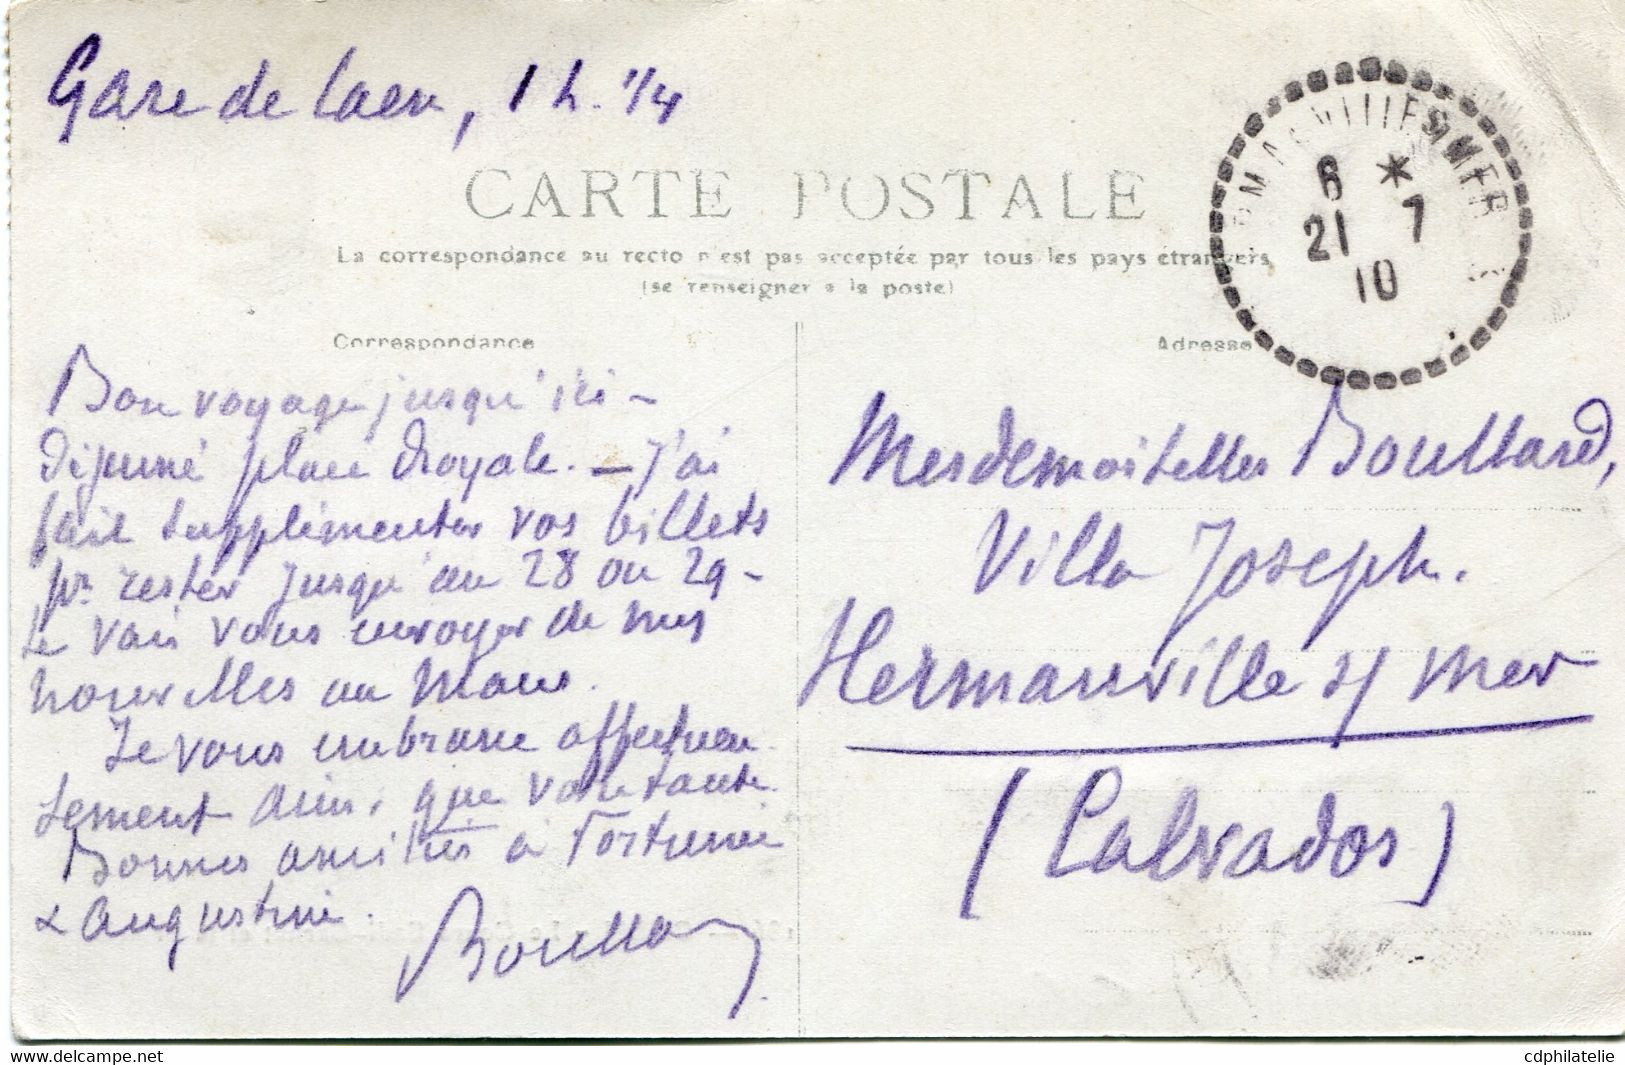 Gare de Caen, 1 h. 1/4
CARTE POSTALE
La correspondance au recto n'est pas acceptée par tous les pays étrangers
(se renseigner à la poste)
HERMANVILLE S/MER
6 *
21 7
10
Correspondance
Adresse
Bon voyage jusqu'ici –
Déjeuné place Royale. – J'ai
fait supplémenter vos billets
pr. rester jusqu'au 28 ou 29 –
Je vais vous envoyer de mes
nouvelles au Mans.
Je vous embrasse affectueu
sement ainsi que votre tante.
Bonnes amitiés à Fortunée
& Augustine.
Boullard
Mesdemoiselles Boullard,
Villa Joseph.
Hermanville s/ mer
(Calvados)
cdphilatelie